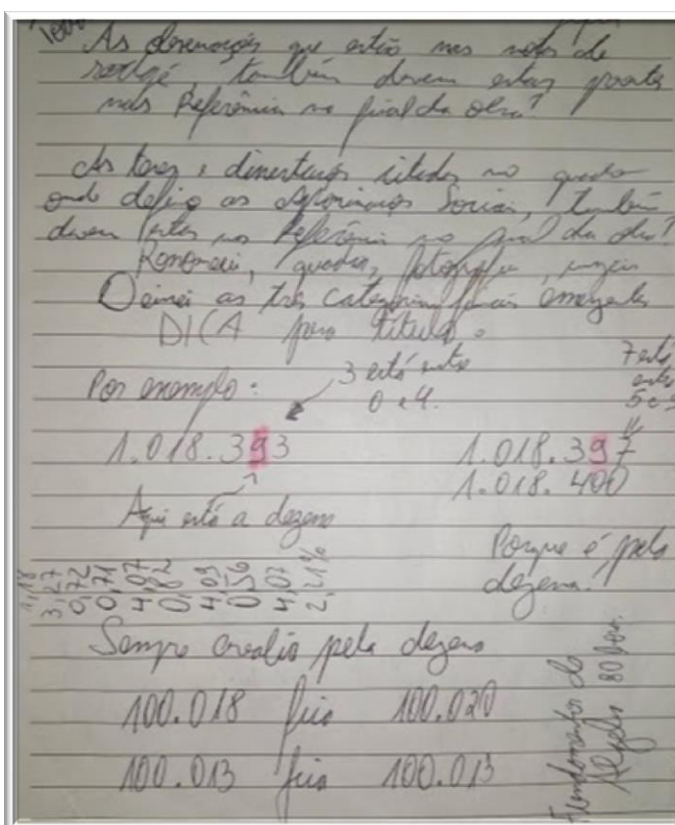 As observações que estão nas notas de
rodapé, também devem estar prontas
nas Referências no final da obra?
As teses e dissertações citadas no quadro
onde defino as Sociais, também
devem estar nas Referências no final da obra?
quadros, fotografia,
as três categorias emergentes
DICA para título.
Por exemplo:
3 está entre
0 e 4.
7 está
entre
5 e 9
1.018.393
1.018.397
1.018.400
Aqui está a dezena
Porque é pela
dezena!
1,18
3,27
0,72
0,71
4,07
0,82
4,09
0,56
4,07
2,21%
Sempre avalio pela dezena
100.018 fica 100.020
100.013 fica 100.013